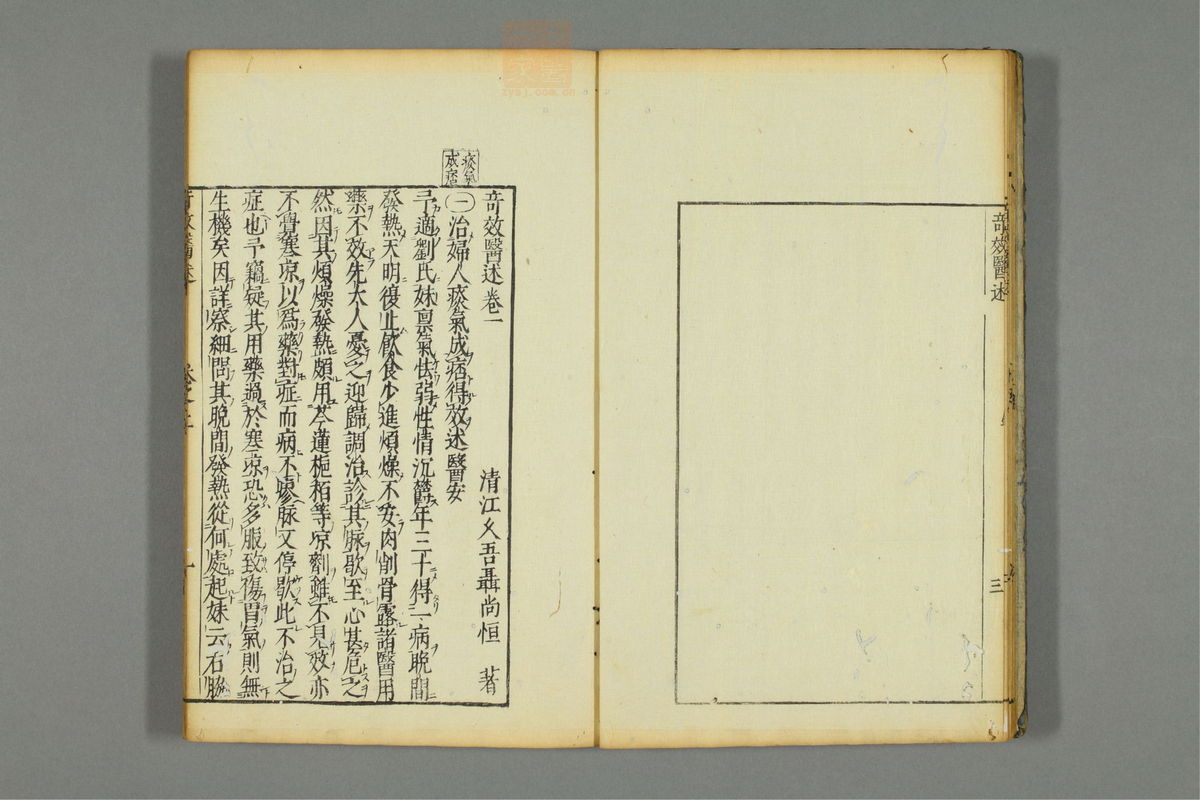 奇效醫述
三
奇效醫述卷一
清江乂吾聶尚恒 著
痰氣
成痞
㊀治婦人痰氣成痞得效述醫案
予適劉氏妹禀氣怯弱性情沉鬱年三十得一病晚間
發熱天明復止飲食少進煩燥不安肉削骨露諸醫用
藥不效先大人憂之迎歸調治診其脉歇至心甚危之
然因其煩燥發熱頗用芩蓮梔栢等凉劑雖不見效亦
不覺寒凉以爲藥對症而病不瘳脉又停歇此不治之
症也予竊疑其用藥過於寒凉恐多服致傷胃氣則無
生機矣因詳察細問其晚間發熱從何處起妹云右脇
奇效醫述